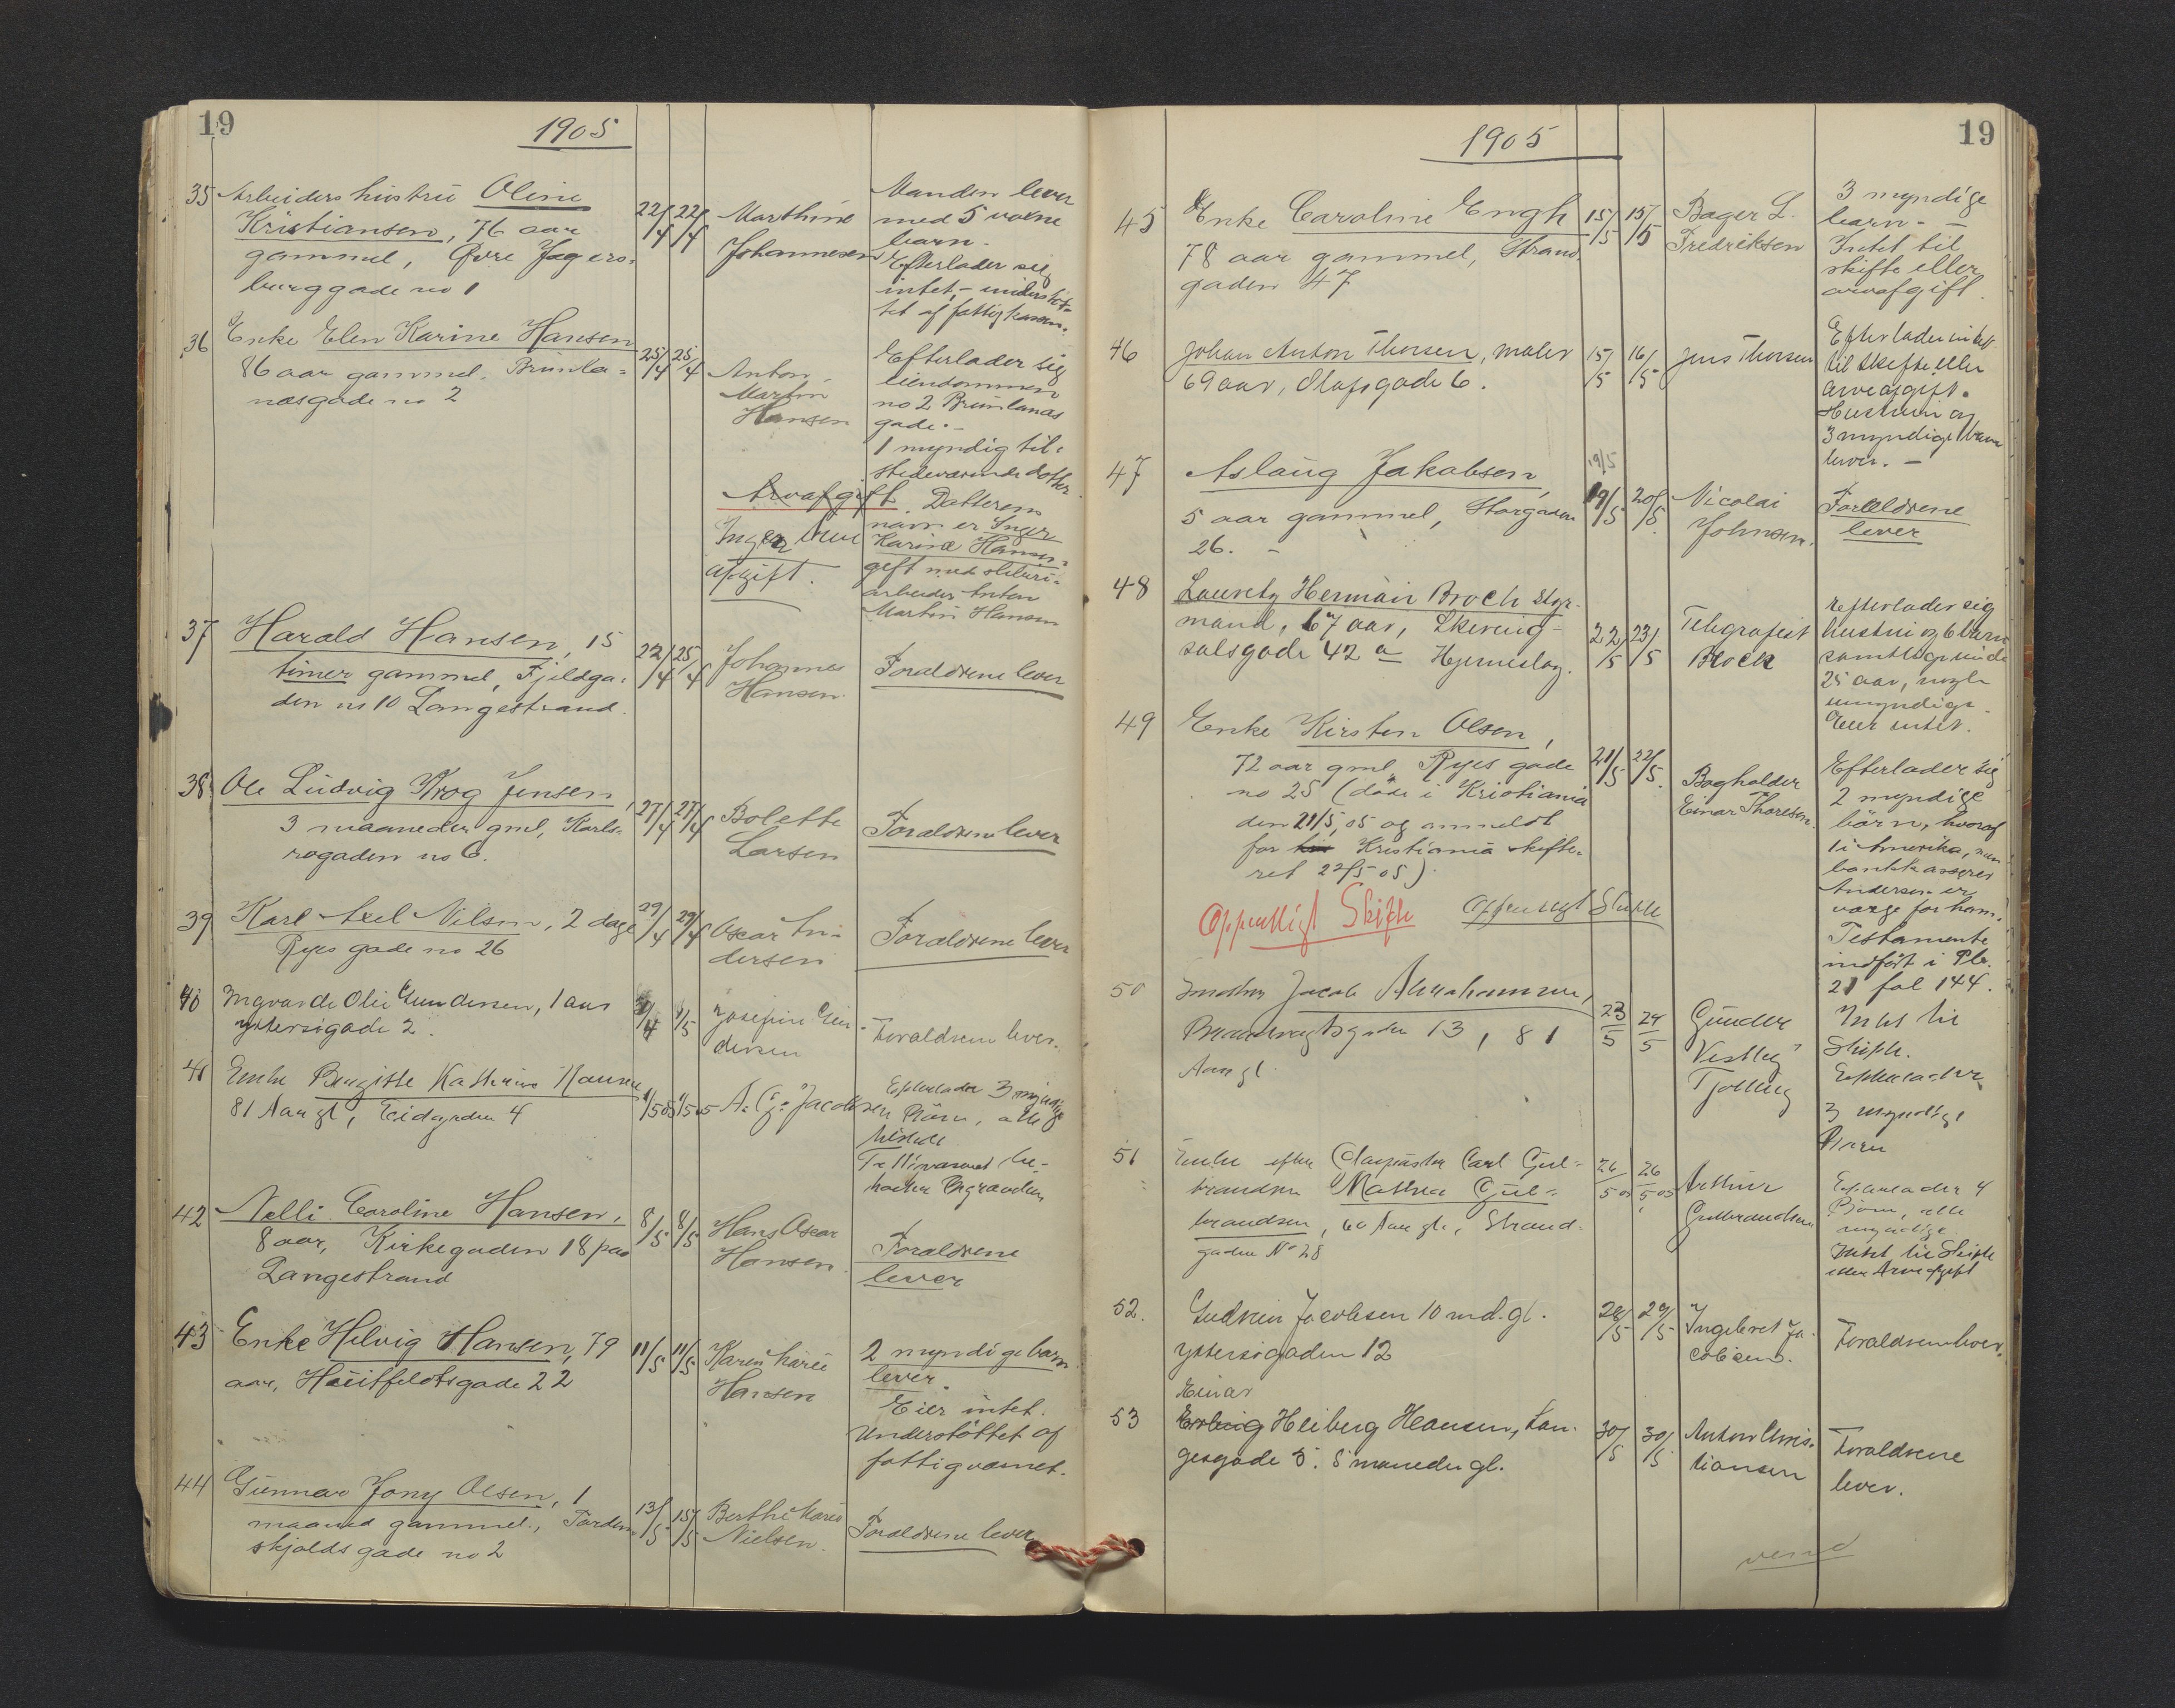 19
1905
35 Arbeiders hustru Oline
Kristiansen, 76 aar
gammel, Øvre Jegers-
borggade no 1
22/4 22/4
Marthine
Johannesen
Manden lever
med 5 voxne
barn.
Efterlader sig
intet, - understöt-
tet af fattigkassen.
36 Enke Elen Karine Hansen
86 aar gammel. Brunla-
næsgade no 2
25/4 25/4
Anton
Martin
Hansen
Efterlader sig
eiendommen
no 2 Brunlanæs
gade. -
1 myndig til-
stedeværende dotter.
Arvafgift. Datterens
navn er Inger
Karine Hansen,
gift med
arbeider Anton
Martin Hansen
Ingen
afgift.
37 Harald Hansen, 15
timer gammel, Fjeldga-
den no 10 Langestrand.
22/4 25/4
Johannes
Hansen.
Foraldrene lever
38 Ole Ludvig Krog Jensen,
3 maaneder gml, Karls-
rogaden no 6.
27/4 27/4
Bolette
Larsen
Foraldrene lever
39 Karl Axel Nilsen, 2 dage
Ryes gade no 26
29/4 29/4
Oscar An-
dersen
Foraldrene lever
40 Ingvarde Olie Gundersen, 1 aar
ystersigade 2.
/4 1/5
Josefine Gun-
dersen
Foraldrene lever.
41 Enke Birgitte Kathrine Hansen
81 Aar gl, Eidgaden 4
1/5 05 1/5 05
A. G. Jacobsen
Efterlader 3 myndige
Börn, alle
tilstede
42 Nelli Caroline Hansen,
8 aar, Kirkegaden 18 paa
Langestrand
8/5 8/5
Hans Oscar
Hansen.
Foraldrene
lever
43 Enke Helvig Hansen, 79
aar, Hüitfeldtsgade 22
11/5 11/5
Karen Marie
Hansen
2 myndige barn
lever.
Eier intet.
Understöttet af
fattigvæsnet.
44 Gunnar Jony Olsen, 1
maaned gammel, Torden-
skjolds gade no 2
13/5 15/5
Berthe Marie
Nielsen.
Foraldrene lever
19
1905
45 Enke Caroline Engh
78 aar gammel, Strand-
gaden 47
15/5 15/5
Bager L.
Fredriksen
3 myndige
barn. -
Intet til
skifte eller
arvafgift.
46 Johan Anton Thorsen, maler
69 aar, Olafsgade 6.
15/5 16/5
Jens Thorsen
Efterlader intet
til skifte eller
arveafgift.
Hustru og
3 myndige barn
lever. -
47 Aslaug Jakobsen,
5 aar gammel, Storgaden
26. -
19/5
19/5 20/5
Nicolai
Johnsen.
Forældrene
lever
48 Lauretz Herman Broch styr-
mand, 67 aar, Skrening-
salsgade 42 a Hjerneslag.
22/5 23/5
Telegrafist
Brock
Efterlader sig
hustru og 6 barn
samtlige under
25 aar, nogle
umyndige.
Eier intet.
49 Enke Kirsten Olsen,
72 aar gml Ryes gade
no 25 (döde i Kristiania
den 21/5 05 og anmeldt
for Kristiania skifte-
ret 22/5 05)
21/5 22/5.
Bogholder
Einar Thoresen.
Efterlader sig
2 myndige
börn, hvoraf
1 i Amerika, men
bankkasserer
Andersen er
værge for ham.
Testamente
indfört i Pb.
21 fol 144.
Offentligt Skifte Offentligt Skifte
50 Jacob Abrahamsen,
Brandvagtsgaden 13, 81
Aar gl.
23/5 24/5
Gunder
Vestby
Tjölling
Intet til
Skifte.
Efterlader
3 myndige
Börn
51 Enke efter Carl Gul-
brandsen Mathea Gul-
brandsen, 60 Aar gl., Strand-
gaden No 28
26/5 05 26/5 05
Arthur
Gulbrandsen
Efterlader 4
Börn, alle
myndige
Intet til Skifte
eller Arveafgift
52. Gudrun Jacobsen 10 md. gl.
ystersigaden 12
28/5 29/5
Ingebret Ja-
cobsen.
Foraldrene lever.
Einar
53 Erling Heiberg Hansen, Lan-
gesgade 5. 8 maneder gl.
30/5 30/5
Anton Chris-
tiansen
Foraldrene
lever.
vend